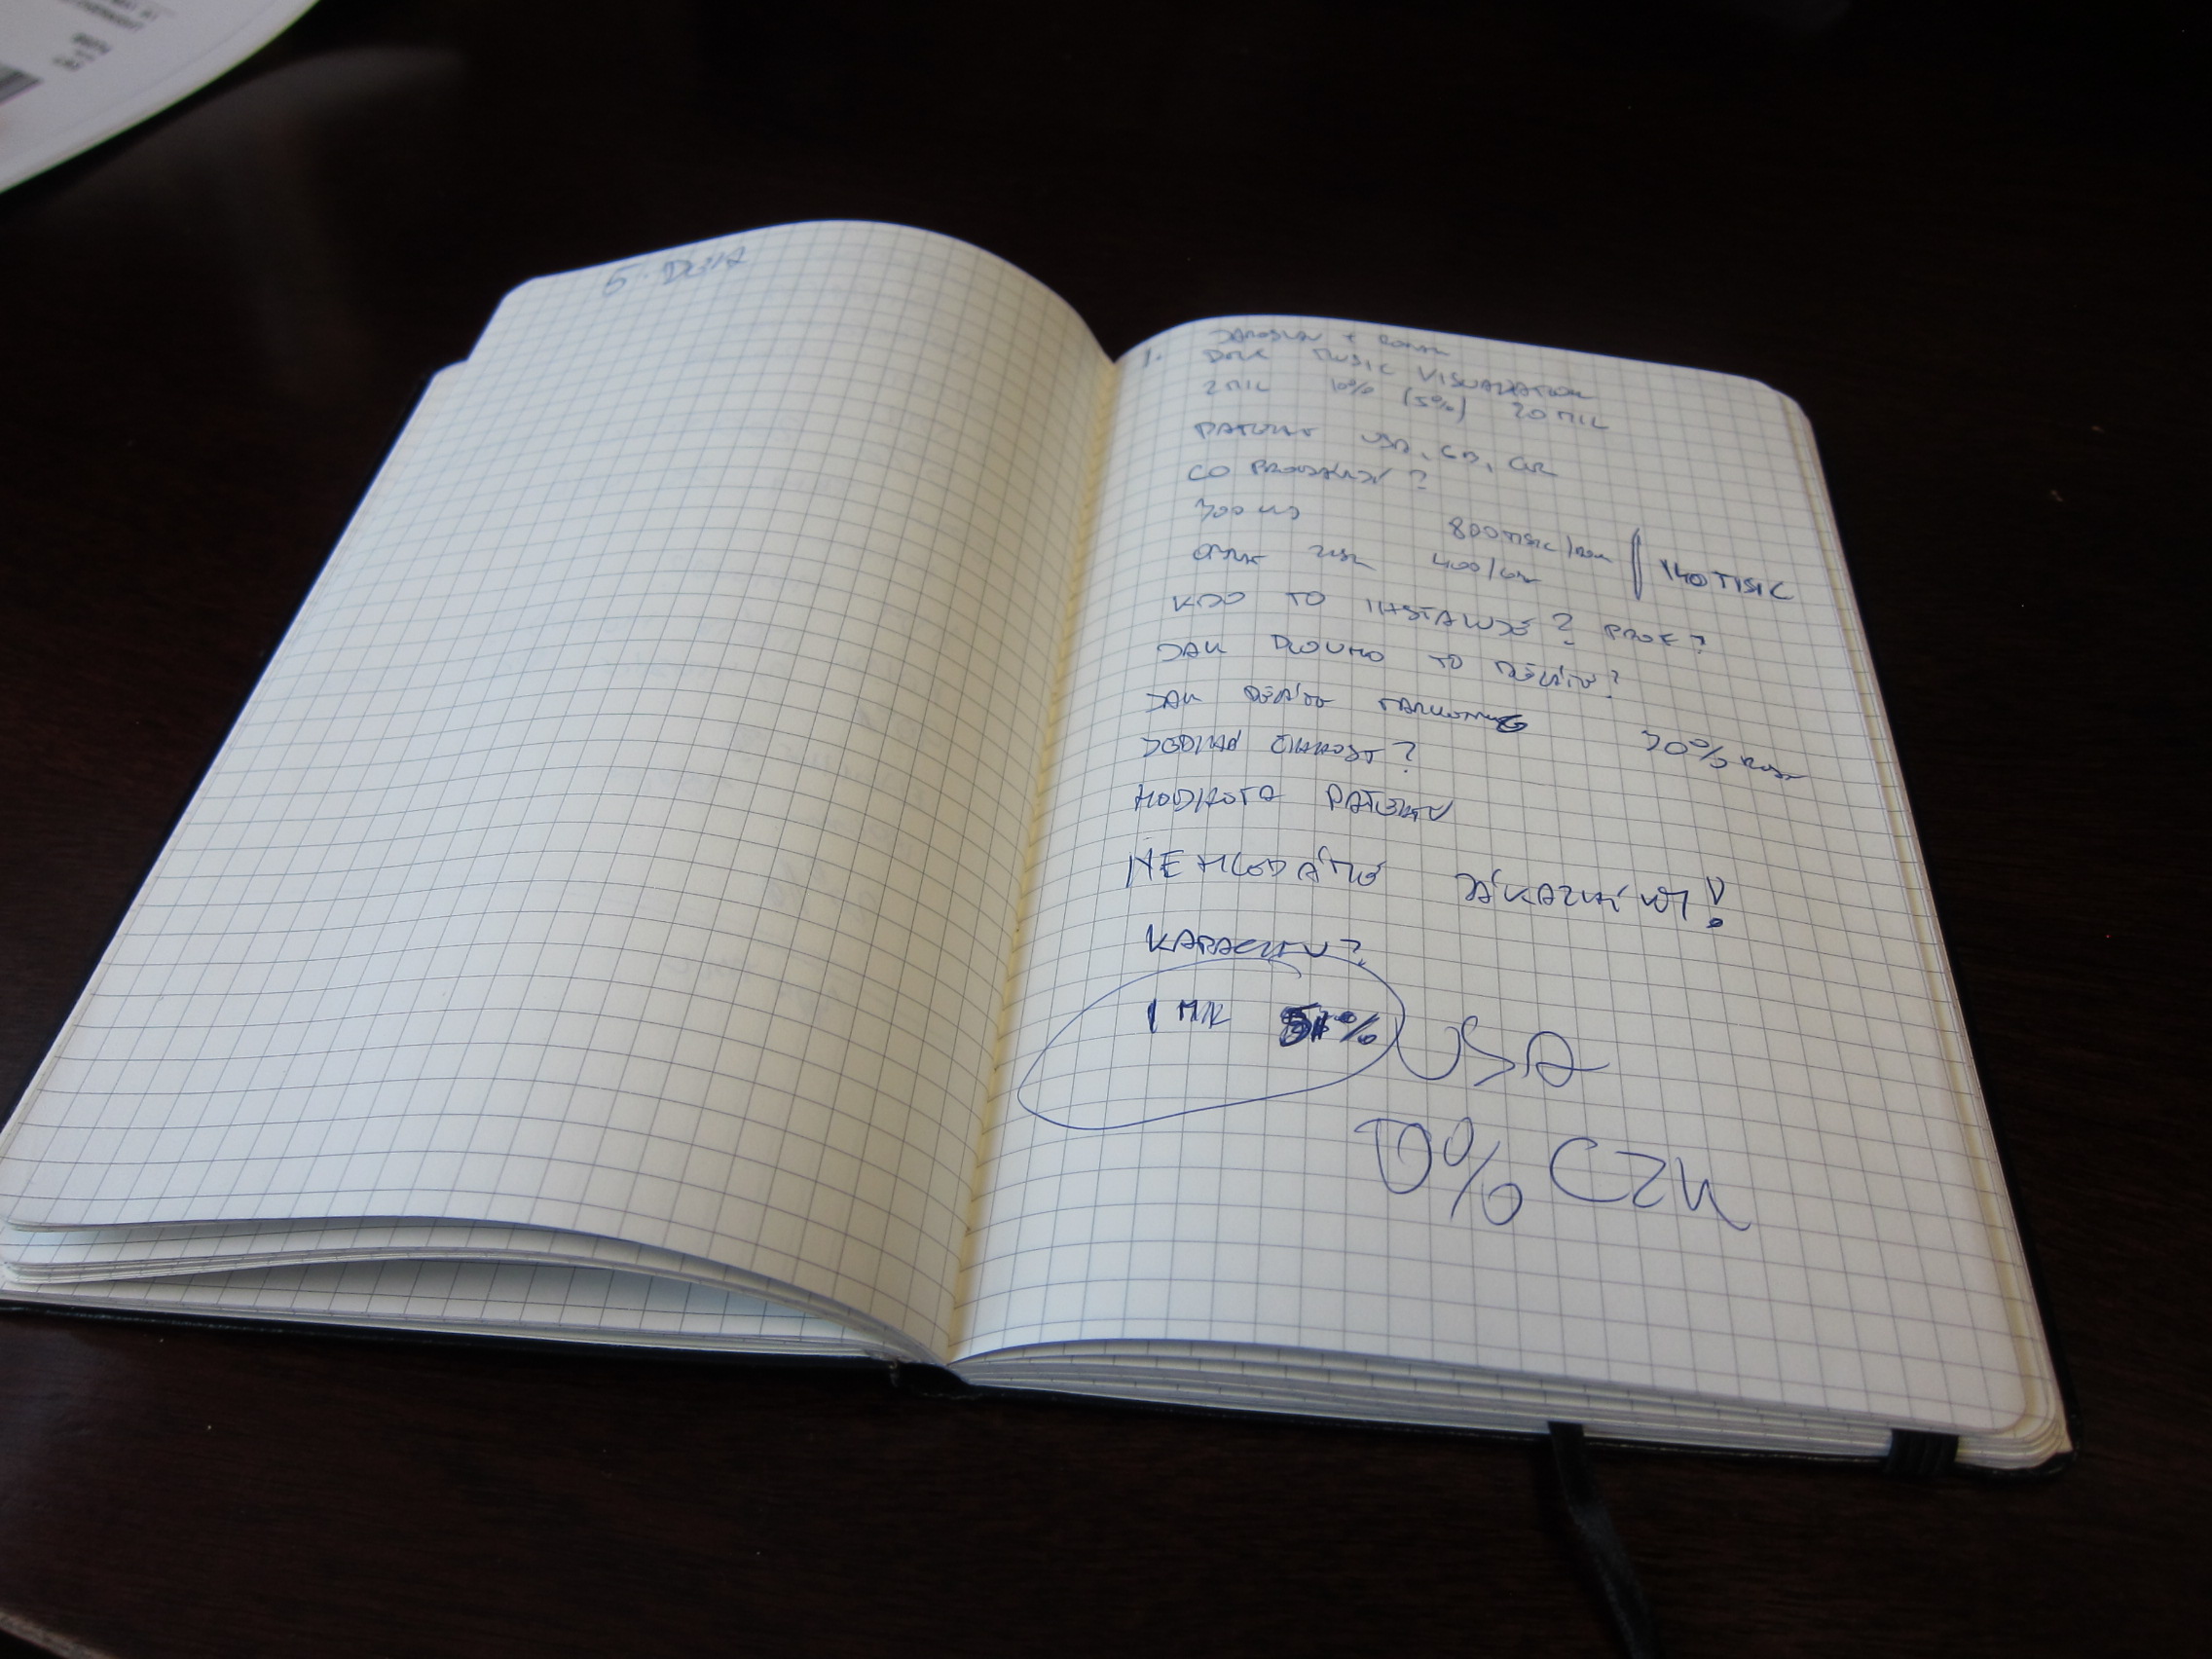 5. DEN
1. JAROSLAV +
MUSIC VISUALIZATION
2 MIL 10% (5%) 20 MIL
PATENT USA, GB,
CO PRODÁVÁ?
300 KS 800 TISIC / ROK 140 TISIC
ZISK 400 /
KDO TO INSTALUJE? PROF?
JAK DLOUHO TO DĚLÁTE?
JAK DĚLÁTE MARKETING
30% ROST
JEDINÁ ČINNOST?
HODNOTA PATENTU
NEHLEDÁTE ZÁKAZNÍKY!
KAPACITU?
1 MIL 51% USA
10% CZK